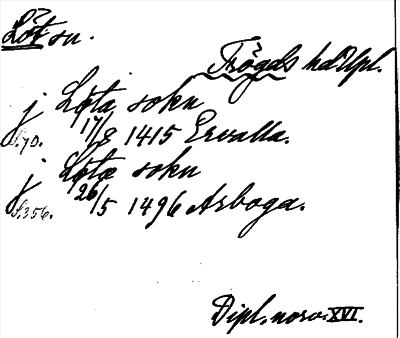 Löt sn.
Trögds hd Upl.
j Løta sokn
S. 70. 17/8 1415 Ervalla.
j Løtæ sokn
S. 356. 26/5 1496 Arboga.
Dipl. norv. XVI.